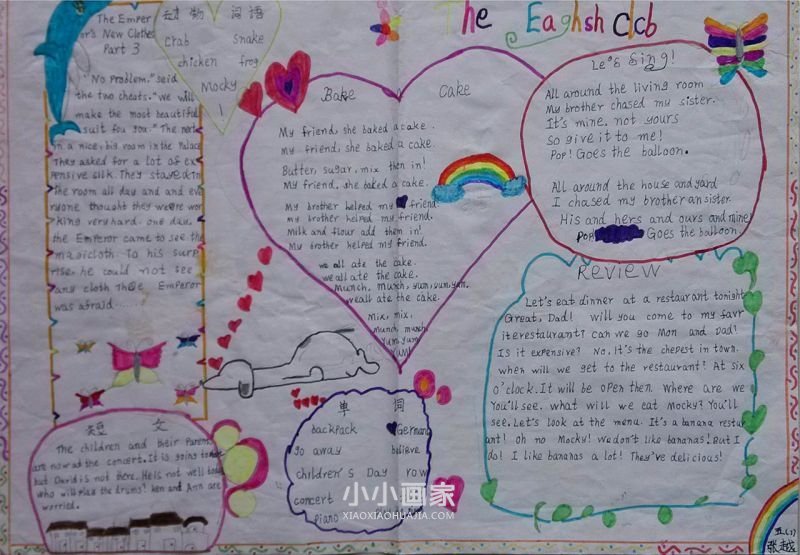 The Eaghsh clcb
The Emper
or's New Clothes
Part 3
"No problem." said
the two cheats. "We will
make the most beautiful
suit fou you." The rent
in a nice, big room in the Palace
They asked for a lot of ex
pensive silk. They stayed in
the room all day and and eve
ryone thought they were wor
king very hard. one day,
the Emperor came to see the
magiccloth. To his surp
rise, he could not see
any cloth The Emperor
was afraid......
动物词语
crab snake
chicken frog
Mocky
!
Bake a Cake
My friend, she baked a cake.
My friend, she baked a cake.
Butter, sugar, mix then in!
My friend, she baked a cake.
My brother helped my friend.
my brother helped my friend.
Milk and flour add them in!
My brother helped my friend.
we all ate the cake.
we all ate the cake.
Munch, munch, yum, yum, yum.
we all ate the cake.
Mix, mix,
munch, munch,
Yum, yum,
Yum!
Let's Sing!
All around the living room
My brother chased my sister.
It's mine, not yours
So give it to me!
POP! Goes the balloon.
All around the house and yard
I chased my brother an sister.
His and hers and ours and mine!
POP! Goes the balloon.
Review
Let's eat dinner at a restaurant tonight
Great, Dad! will you come to my favr
ite restaurant? can we go Mon and Dad?
Is it expensive? No, it's the chepest in town.
when will we get to the restaurant? At six
o'clock. It will be open then. Where are we
You'll see. what will we eat Mocky? You'll
see. Let's look at the menu. It's a banana restur
ant! oh no Mocky! we don't like bananas! But I
do! I like bananas a lot! They've delicious!
短文
The children and their parents
are now at the concert. It is going to
but David is not there. He is not well today
who will play the drums? Ken and Ann are
worried.
单词
backpack Germany
go away believe
children's Day row
concert
piano
小小画家
XIAOXIAOHUAJIA.COM
五(1)
张越